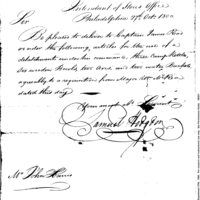 Intendant of Stores Office
Philadelphia 27th Oct. 1800
Sir
Be pleased to deliver to Captain
under the following articles for the use of a
detachment under his command. Three Camp Kettles,
Six wooden Bowls, two Axes and two water Buckets
agreeably to a requisition from Major
dated this day
Servant
Samuel Hodgdon
Mr John Harris